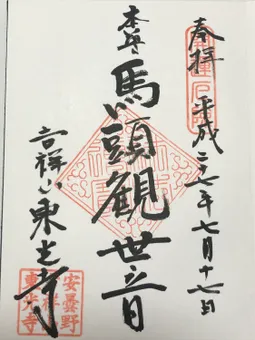 奉拝
平成二十七年七月十七日
本尊
馬頭観世音
吉祥山東光寺
安曇野
東光寺